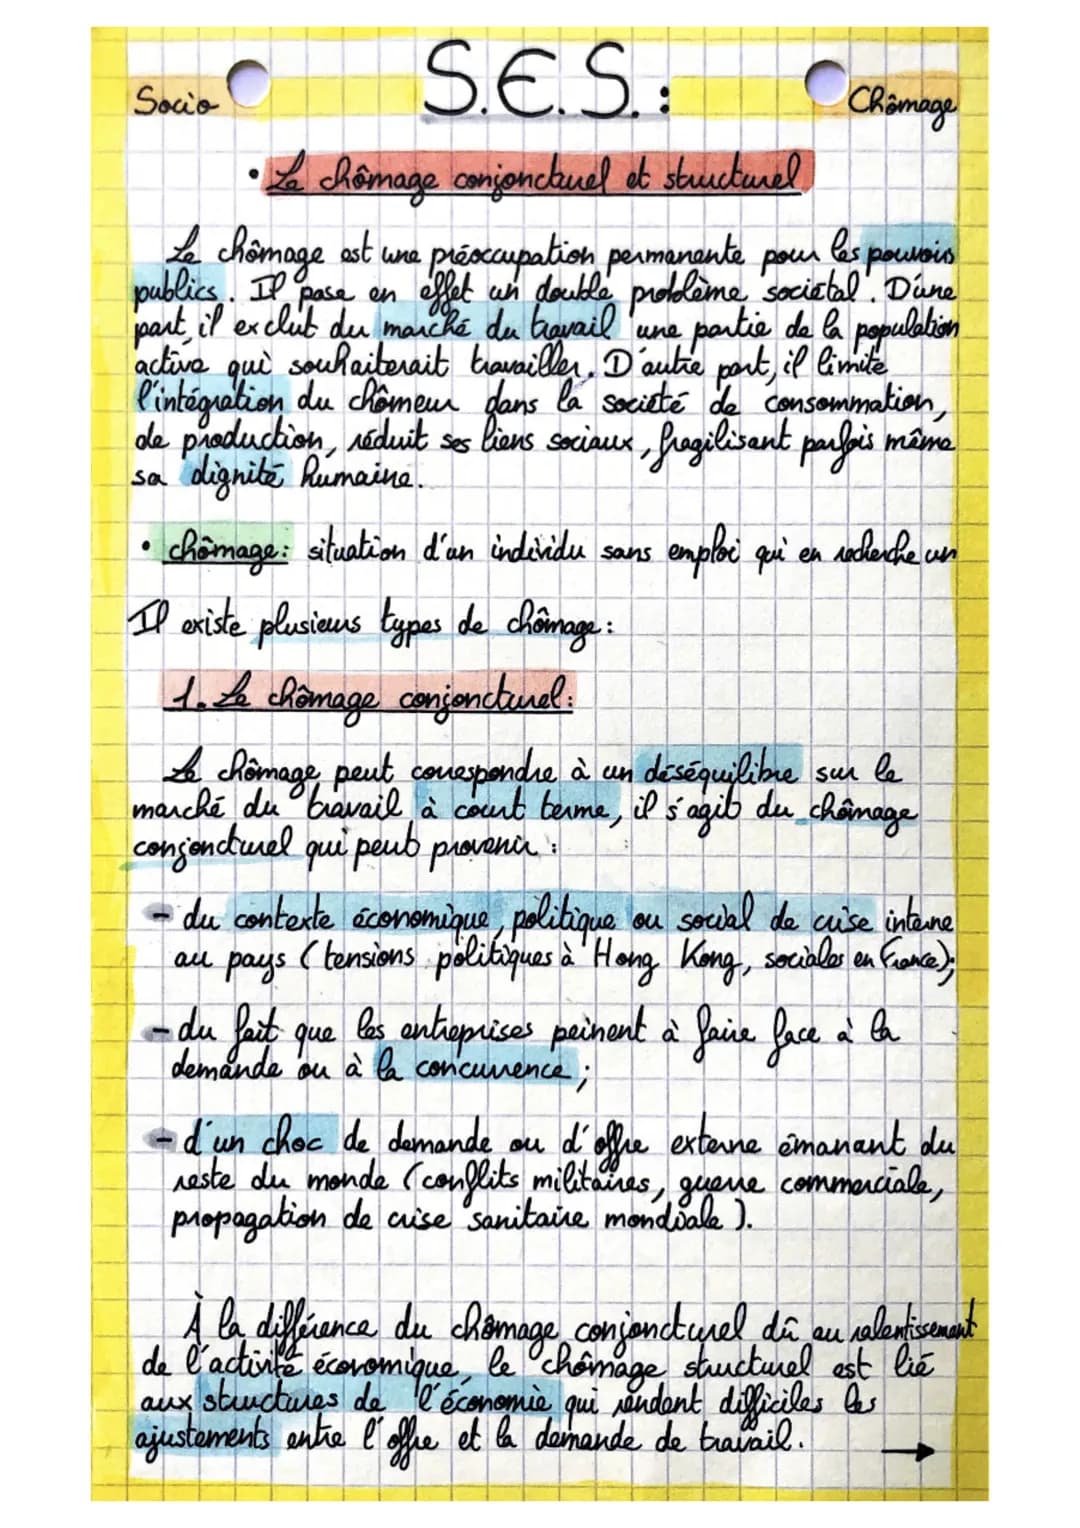 S.E.S. :
Socio
Chômage
• Le chômage conjoncturel et structurel
Le chômage est une préoccupation permanente pour les pouvoirs
publics. Il pose en effet un double problème sociétal. D'une
part, il exclut du marché du travail une partie de la population
active qui souhaiterait travailler. D'autre part, il limite
l'intégration du chômeur dans la société de consommation,
de production, réduit ses liens sociaux, fragilisant parfois même
sa dignité humaine.
• chômage: situation d'un individu sans emploi qui en recherche un
Il existe plusieurs types de chômage:
1. Le chômage conjoncturel:
Le chômage peut correspondre à un déséquilibre sur le
marché du travail à court terme, il s'agit du chômage
conjoncturel qui peut provenir :
- du contexte économique, politique ou social de crise interne
au pays (tensions politiques à Hong Kong, sociales en France);
- du fait que les entreprises peinent à faire face à la
demande ou à la concurrence ;
- d'un choc de demande ou d'offre externe émanant du
reste du monde (conflits militaires, guerre commerciale,
propagation de crise sanitaire mondiale ).
À la différence du chômage conjoncturel dû au ralentissement
de l'activité économique, le chômage structurel est lié
aux structures de l'économie qui rendent difficiles les
ajustements entre l'offre et la demande de travail.